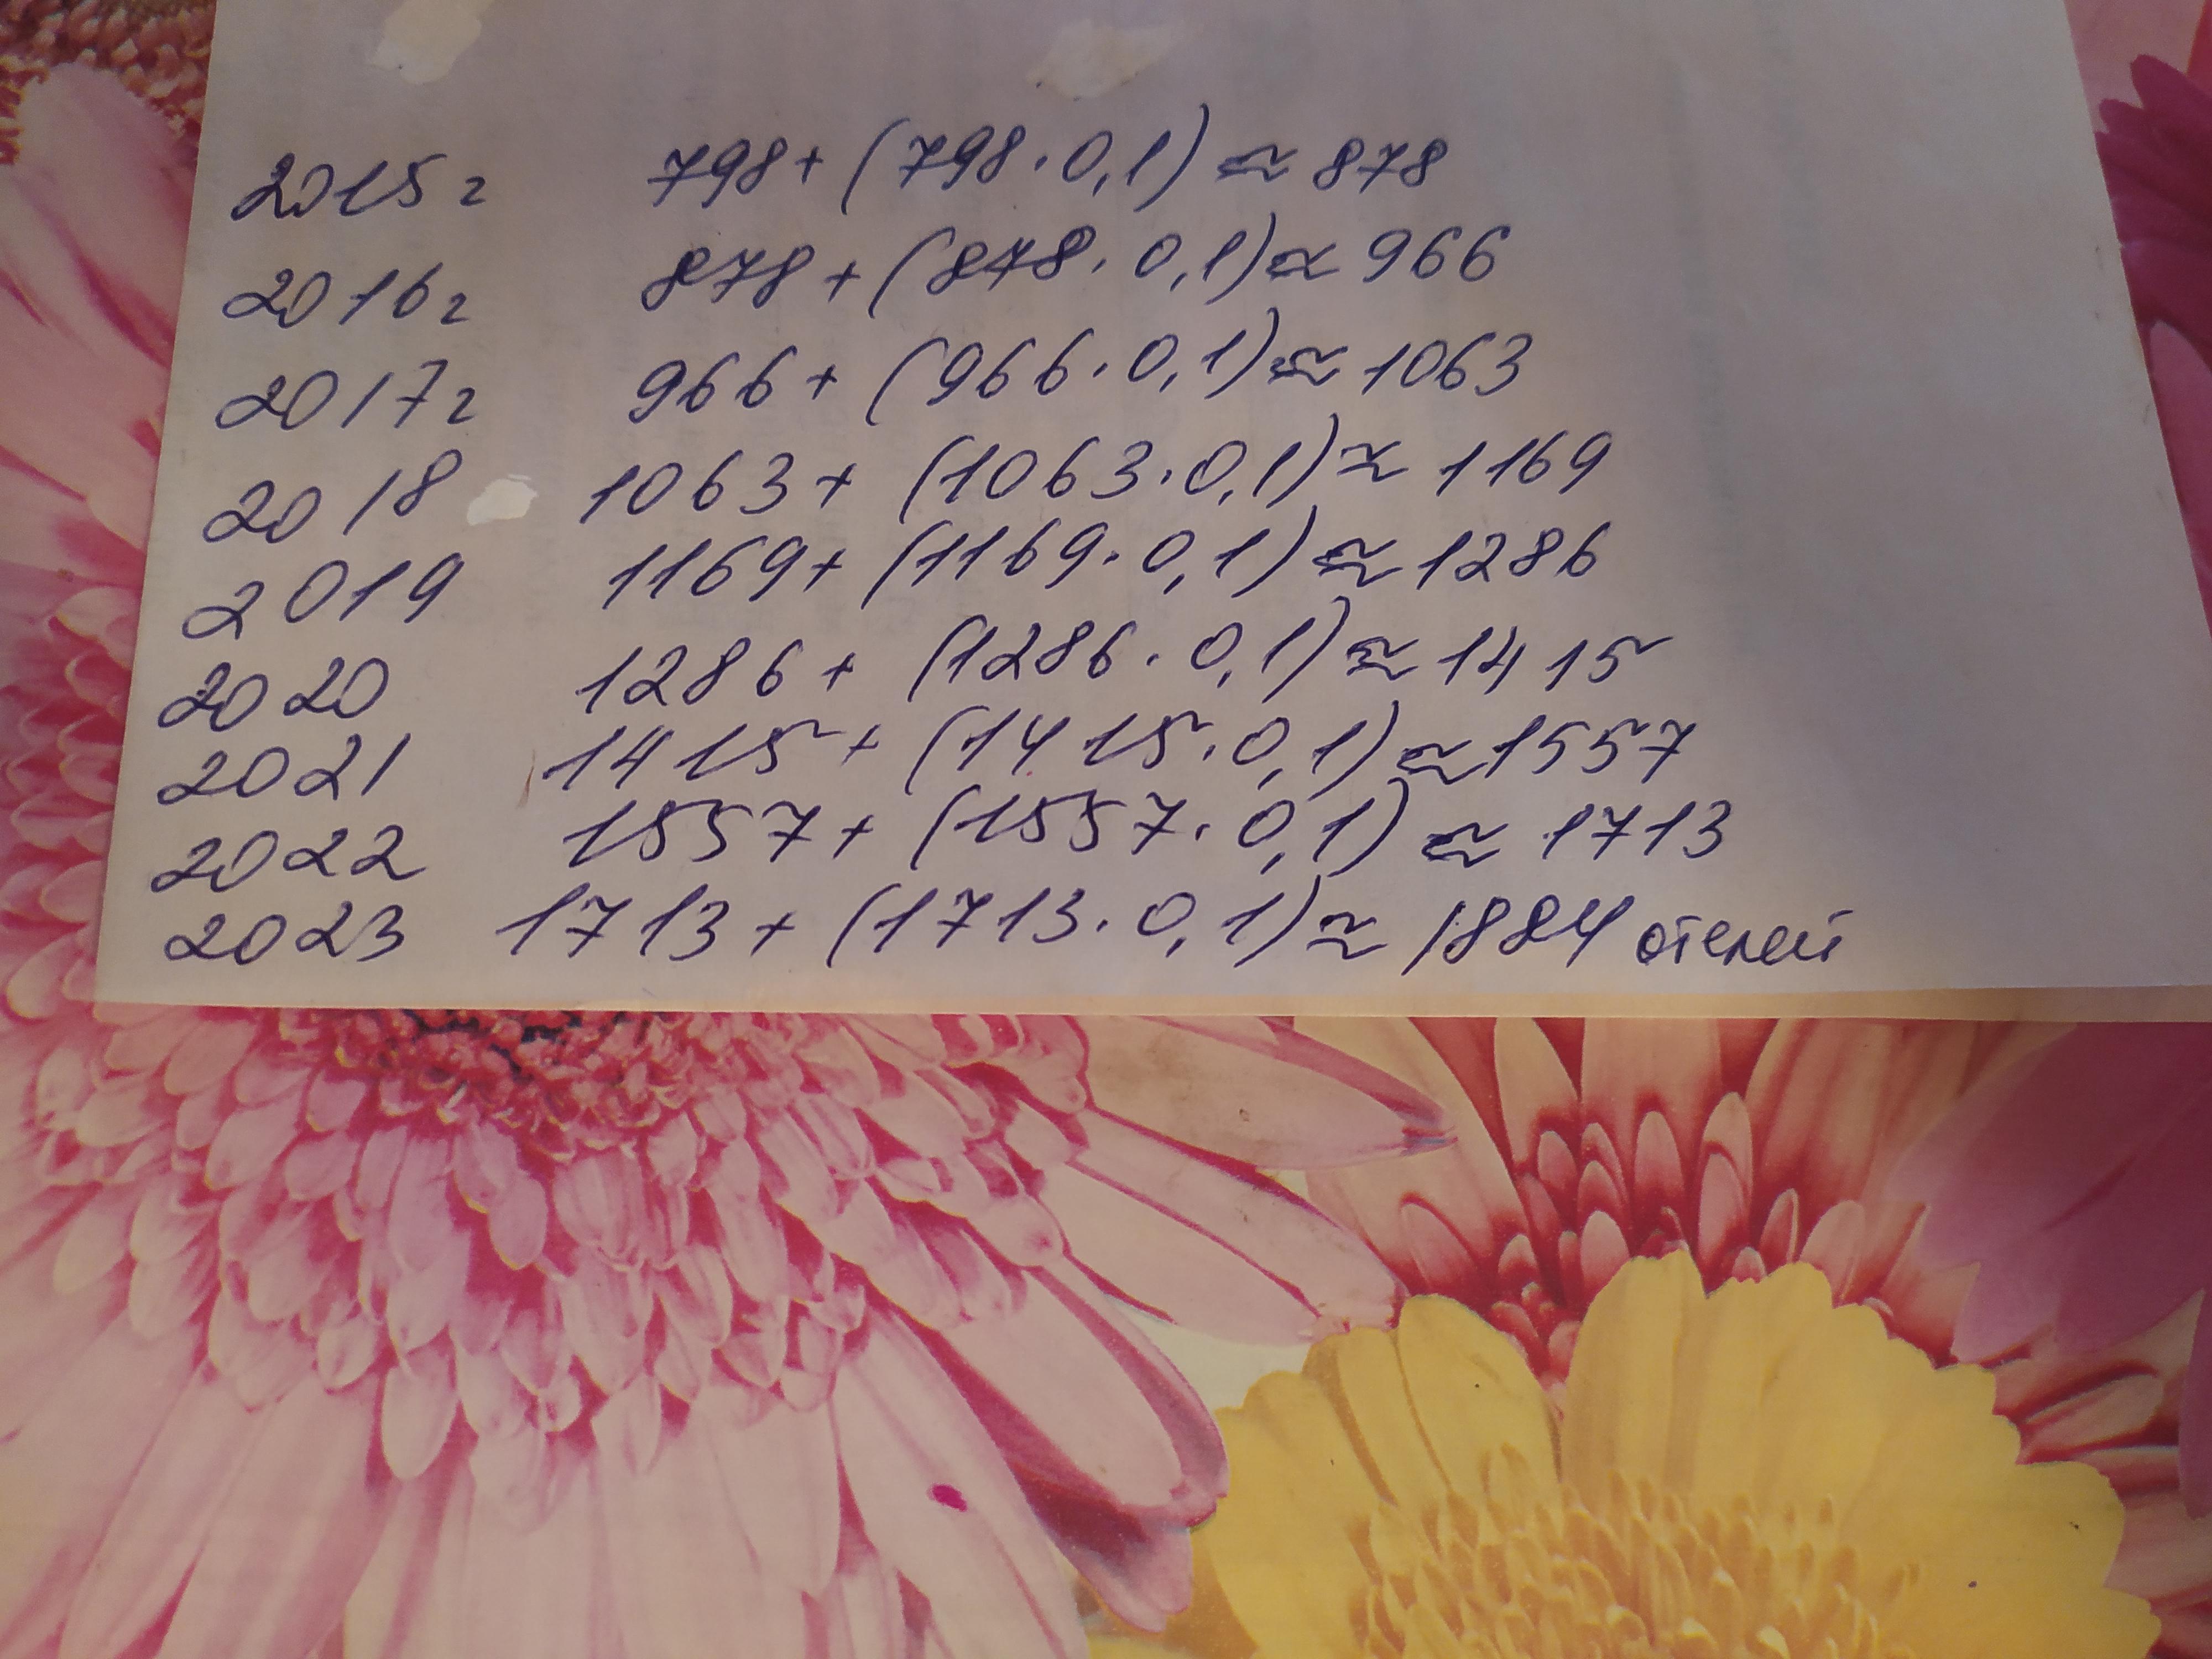 2015г 798+(798·0,1)≈878
2016г 878+(878·0,1)≈966
2017г 966+(966·0,1)≈1063
2018 1063+(1063·0,1)≈1169
2019 1169+(1169·0,1)≈1286
2020 1286+(1286·0,1)≈1415
2021 1415+(1415·0,1)≈1557
2022 1557+(1557·0,1)≈1713
2023 1713+(1713·0,1)≈1884 отелей